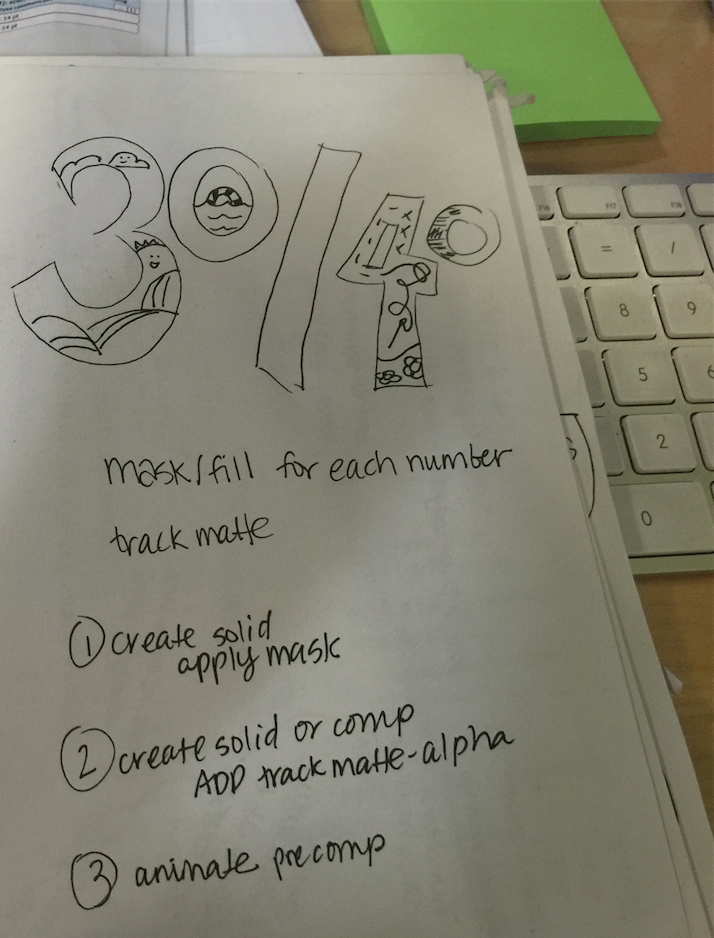 30/40
mask/fill for each number
track matte
① create solid
apply mask
② create solid or comp
ADD track matte-alpha
③ animate precomp
F17
F18
= /
8 9
5 6
2
0